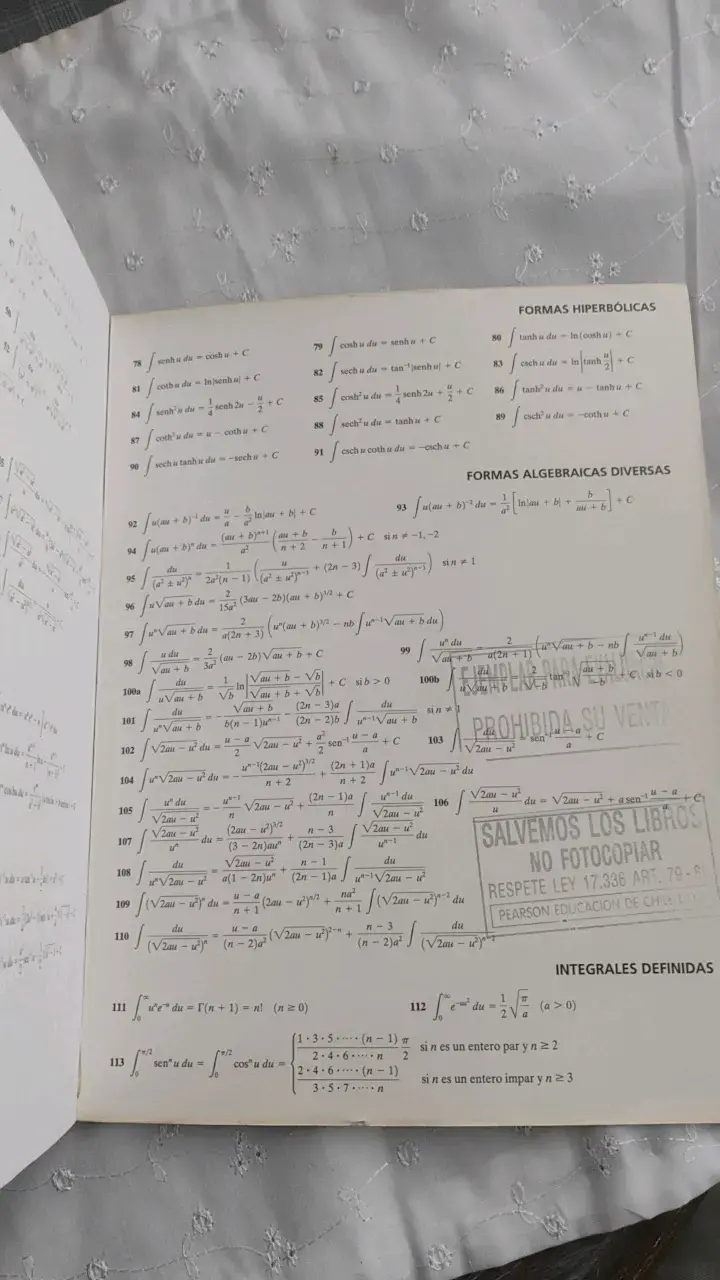 FORMAS HIPERBÓLICAS
78 ∫ senh u du = cosh u + C
79 ∫ cosh u du = senh u + C
80 ∫ tanh u du = ln(cosh u) + C
81 ∫ coth u du = ln|senh u| + C
82 ∫ sech u du = tan⁻¹|senh u| + C
83 ∫ csch u du = ln|tanh u/2| + C
84 ∫ senh² u du = 1/4 senh 2u − u/2 + C
85 ∫ cosh² u du = 1/4 senh 2u + u/2 + C
86 ∫ tanh² u du = u − tanh u + C
87 ∫ coth² u du = u − coth u + C
88 ∫ sech² u du = tanh u + C
89 ∫ csch² u du = −coth u + C
90 ∫ sech u tanh u du = −sech u + C
91 ∫ csch u coth u du = −csch u + C
FORMAS ALGEBRAICAS DIVERSAS
92 ∫ u(au + b)⁻¹ du = u/a − b/a² ln|au + b| + C
93 ∫ u(au + b)⁻² du = 1/a² [ln|au + b| + b/(au + b)] + C
94 ∫ u(au + b)ⁿ du = (au + b)ⁿ⁺¹/a² ((au + b)/(n + 2) − b/(n + 1)) + C si n ≠ −1, −2
95 ∫ du/(a² ± u²)ⁿ = 1/(2a²(n − 1)) (u/(a² ± u²)ⁿ⁻¹ + (2n − 3) ∫ du/(a² ± u²)ⁿ⁻¹) si n ≠ 1
96 ∫ u√(au + b) du = 2/(15a²) (3au − 2b)(au + b)^(3/2) + C
97 ∫ uⁿ√(au + b) du = 2/(a(2n + 3)) (uⁿ(au + b)^(3/2) − nb ∫ uⁿ⁻¹√(au + b) du)
98 ∫ u du/√(au + b) = 2/(3a²) (au − 2b)√(au + b) + C
99 ∫ uⁿ du/√(au + b) = 2/(a(2n + 1)) (uⁿ√(au + b) − nb ∫ uⁿ⁻¹ du/√(au + b))
100a ∫ du/(u√(au + b)) = 1/√b ln|(√(au + b) − √b)/(√(au + b) + √b)| + C si b > 0
100b ∫ du/(u√(au + b)) = 2/√(−b) tan⁻¹ √((au + b)/(−b)) + C, si b < 0
101 ∫ du/(uⁿ√(au + b)) = −√(au + b)/(b(n − 1)uⁿ⁻¹) − (2n − 3)a/((2n − 2)b) ∫ du/(uⁿ⁻¹√(au + b)) si n ≠ 1
102 ∫ √(2au − u²) du = (u − a)/2 √(2au − u²) + a²/2 sen⁻¹ (u − a)/a + C
103 ∫ du/√(2au − u²) = sen⁻¹ (u − a)/a + C
104 ∫ uⁿ√(2au − u²) du = −uⁿ⁻¹(2au − u²)^(3/2)/(n + 2) + (2n + 1)a/(n + 2) ∫ uⁿ⁻¹√(2au − u²) du
105 ∫ uⁿ du/√(2au − u²) = −uⁿ⁻¹/n √(2au − u²) + (2n − 1)a/n ∫ uⁿ⁻¹ du/√(2au − u²)
106 ∫ √(2au − u²)/u du = √(2au − u²) + a sen⁻¹ (u − a)/a + C
107 ∫ √(2au − u²)/uⁿ du = (2au − u²)^(3/2)/((3 − 2n)auⁿ) + (n − 3)/((2n − 3)a) ∫ √(2au − u²)/uⁿ⁻¹ du
108 ∫ du/(uⁿ√(2au − u²)) = √(2au − u²)/(a(1 − 2n)uⁿ) + (n − 1)/((2n − 1)a) ∫ du/(uⁿ⁻¹√(2au − u²))
109 ∫ (√(2au − u²))ⁿ du = (u − a)/(n + 1) (2au − u²)^(n/2) + na²/(n + 1) ∫ (√(2au − u²))ⁿ⁻² du
110 ∫ du/(√(2au − u²))ⁿ = (u − a)/((n − 2)a²) (√(2au − u²))²⁻ⁿ + (n − 3)/((n − 2)a²) ∫ du/(√(2au − u²))ⁿ⁻²
EJEMPLAR PARA
PROHIBIDA SU VENTA
SALVEMOS LOS LIBROS
NO FOTOCOPIAR
RESPETE LEY 17.336 ART. 79 -
PEARSON EDUCACION DE CHILE
INTEGRALES DEFINIDAS
111 ∫₀^∞ uⁿe⁻ᵘ du = Γ(n + 1) = n! (n ≥ 0)
112 ∫₀^∞ e^(−au²) du = 1/2 √(π/a) (a > 0)
113 ∫₀^(π/2) senⁿ u du = ∫₀^(π/2) cosⁿ u du = { 1 · 3 · 5 · ··· · (n − 1)/(2 · 4 · 6 · ··· · n) π/2 si n es un entero par y n ≥ 2
2 · 4 · 6 · ··· · (n − 1)/(3 · 5 · 7 · ··· · n) si n es un entero impar y n ≥ 3